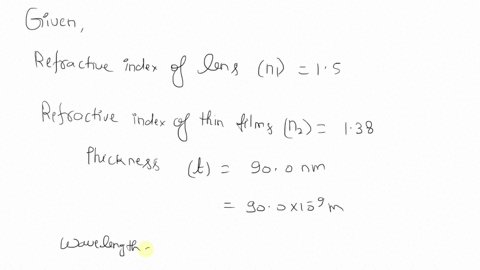 Given,
Refractive index of lens (n1) = 1.5
Refroctive index of thin films (n2) = 1.38
thickness (t) = 90.0 nm
= 90.0 x 10^-9 m
wavelength -